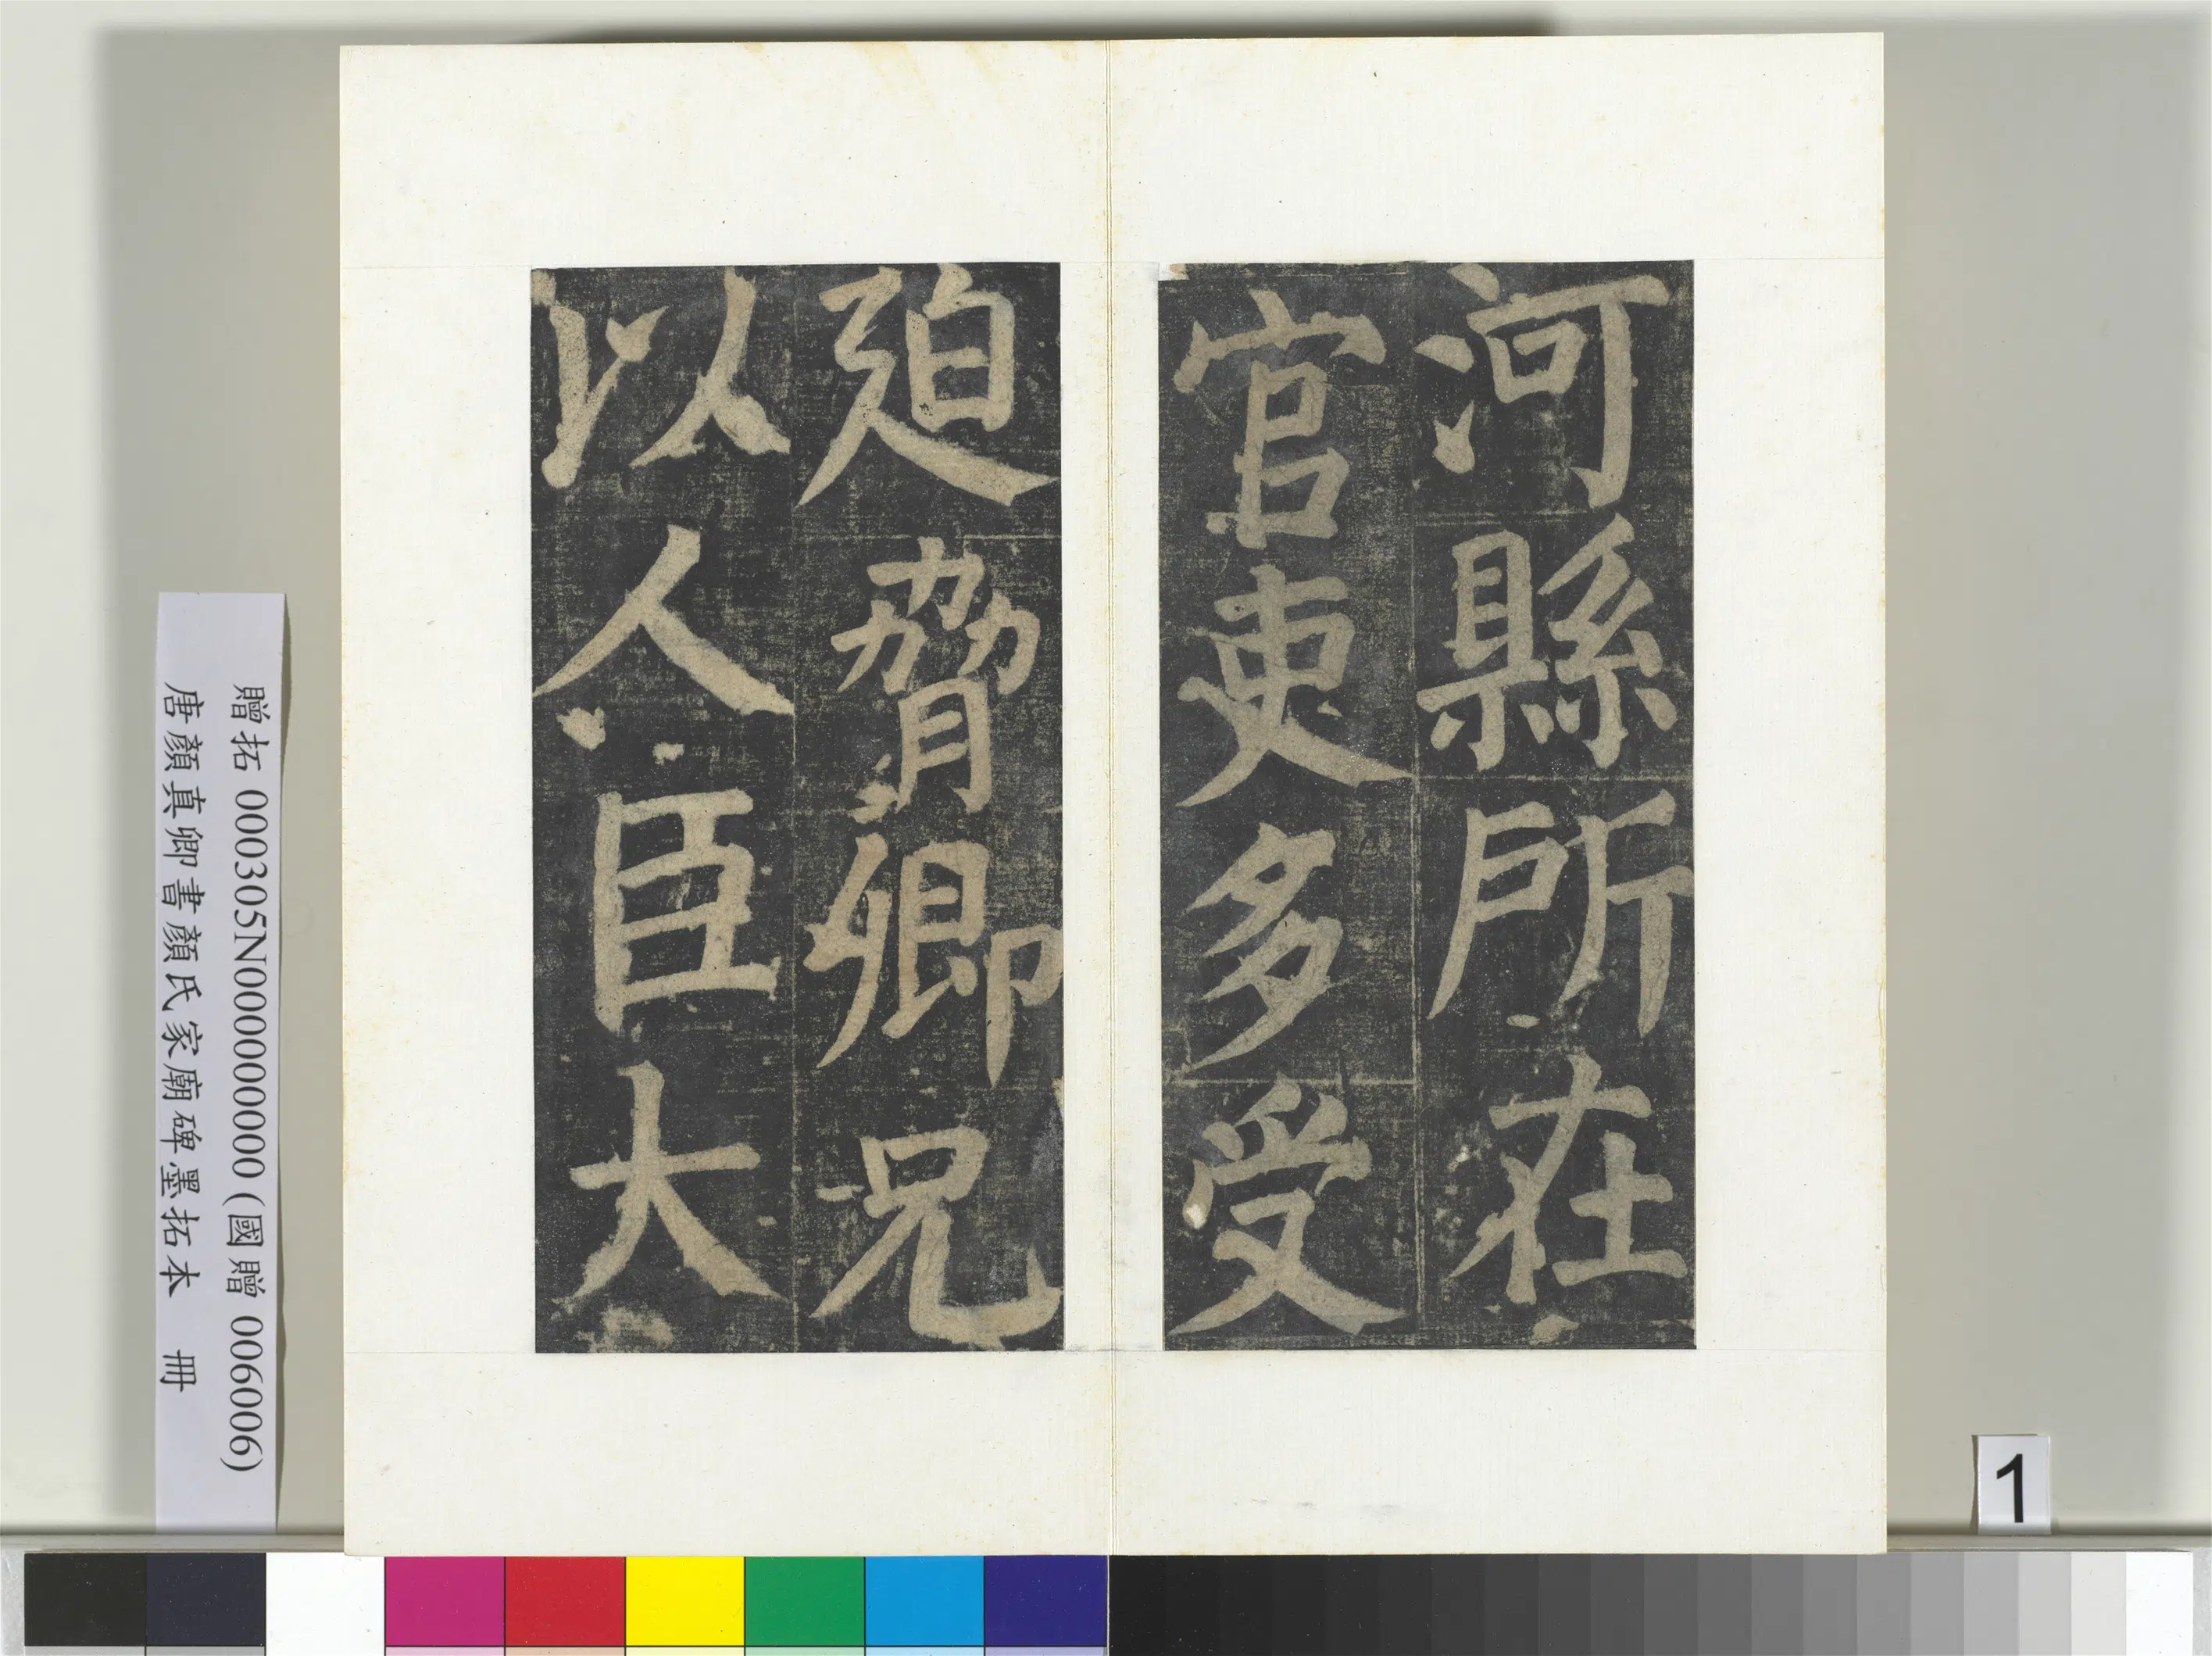 河縣所在
官吏多受
廹脅卿兄
以人臣大
贈拓 000305N000000000 (國贈 006006)
唐顏真卿書顏氏家廟碑墨拓本 冊
1